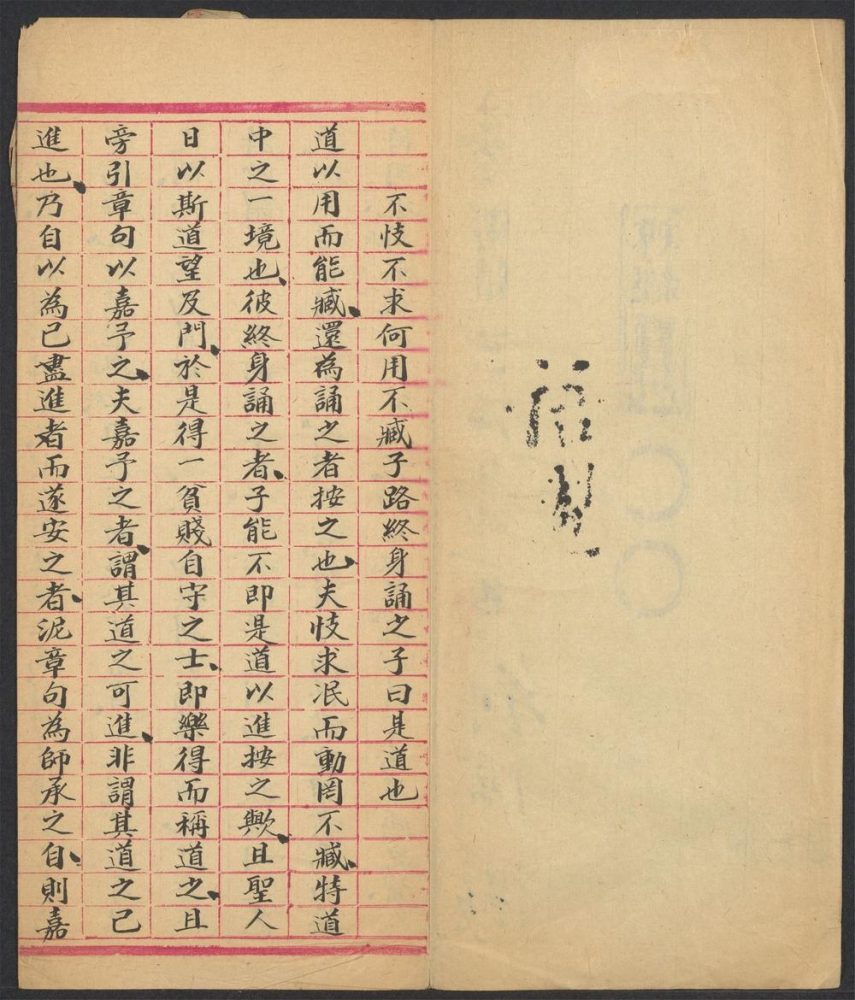 不忮不求何用不臧子路終身誦之子曰是道也
道以用而能臧、還為誦之者按之也、夫忮求泯而動罔不臧、特道
中之一境也、彼終身誦之者、子能不即是道以進按之歟、且聖人
日以斯道望及門、於是得一貧賤自守之士、即樂得而稱道之、且
旁引章句以嘉予之、夫嘉予之者、謂其道之可進、非謂其道之已
進也、乃自以為已盡進者而遂安之者、泥章句為師承之自、則嘉